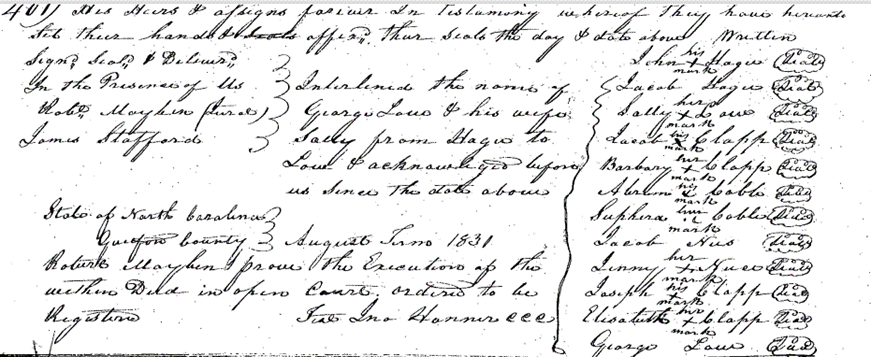 401) His Heirs & assigns forever In testimony whereof they have hereunto
set their hands & seals affixd. thur seals the day & date above Written
Signd, Seald & Deliverd
In the Presence of Us
Robt. Mayben (Jurat)
James Stafford
Interlined the name of
George Low & his wife
Sally from Hague to
Low & acknowledged before
us since the date above
State of North Carolina
Guilford County
August Term 1831
Robert Mayben prove the Execution of the
within Deed in open Court, ordered to be
Registered
Test Jno Hanner CCC
John his + mark Hague (Seal)
Jacob Hague (Seal)
Sally her + mark Low (Seal)
Jacob his x mark Clapp (Seal)
Barbary her + mark Clapp (Seal)
Abram his mark Coble (Seal)
Suphira her mark Coble (Seal)
Jacob (Seal)
her + mark (Seal)
Joseph his + mark Clapp (Seal)
Elisabeth her + mark Clapp (Seal)
George Low (Seal)